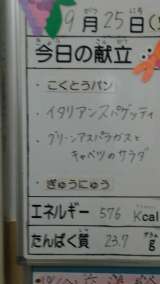 9月25日(
今日の献立
・こくとうパン
・イタリアンスパゲッティ
・グリーンアスパラガスと
キャベツのサラダ
・ぎゅうにゅう
エネルギー 576 Kcal
たんぱく質 23.7 g